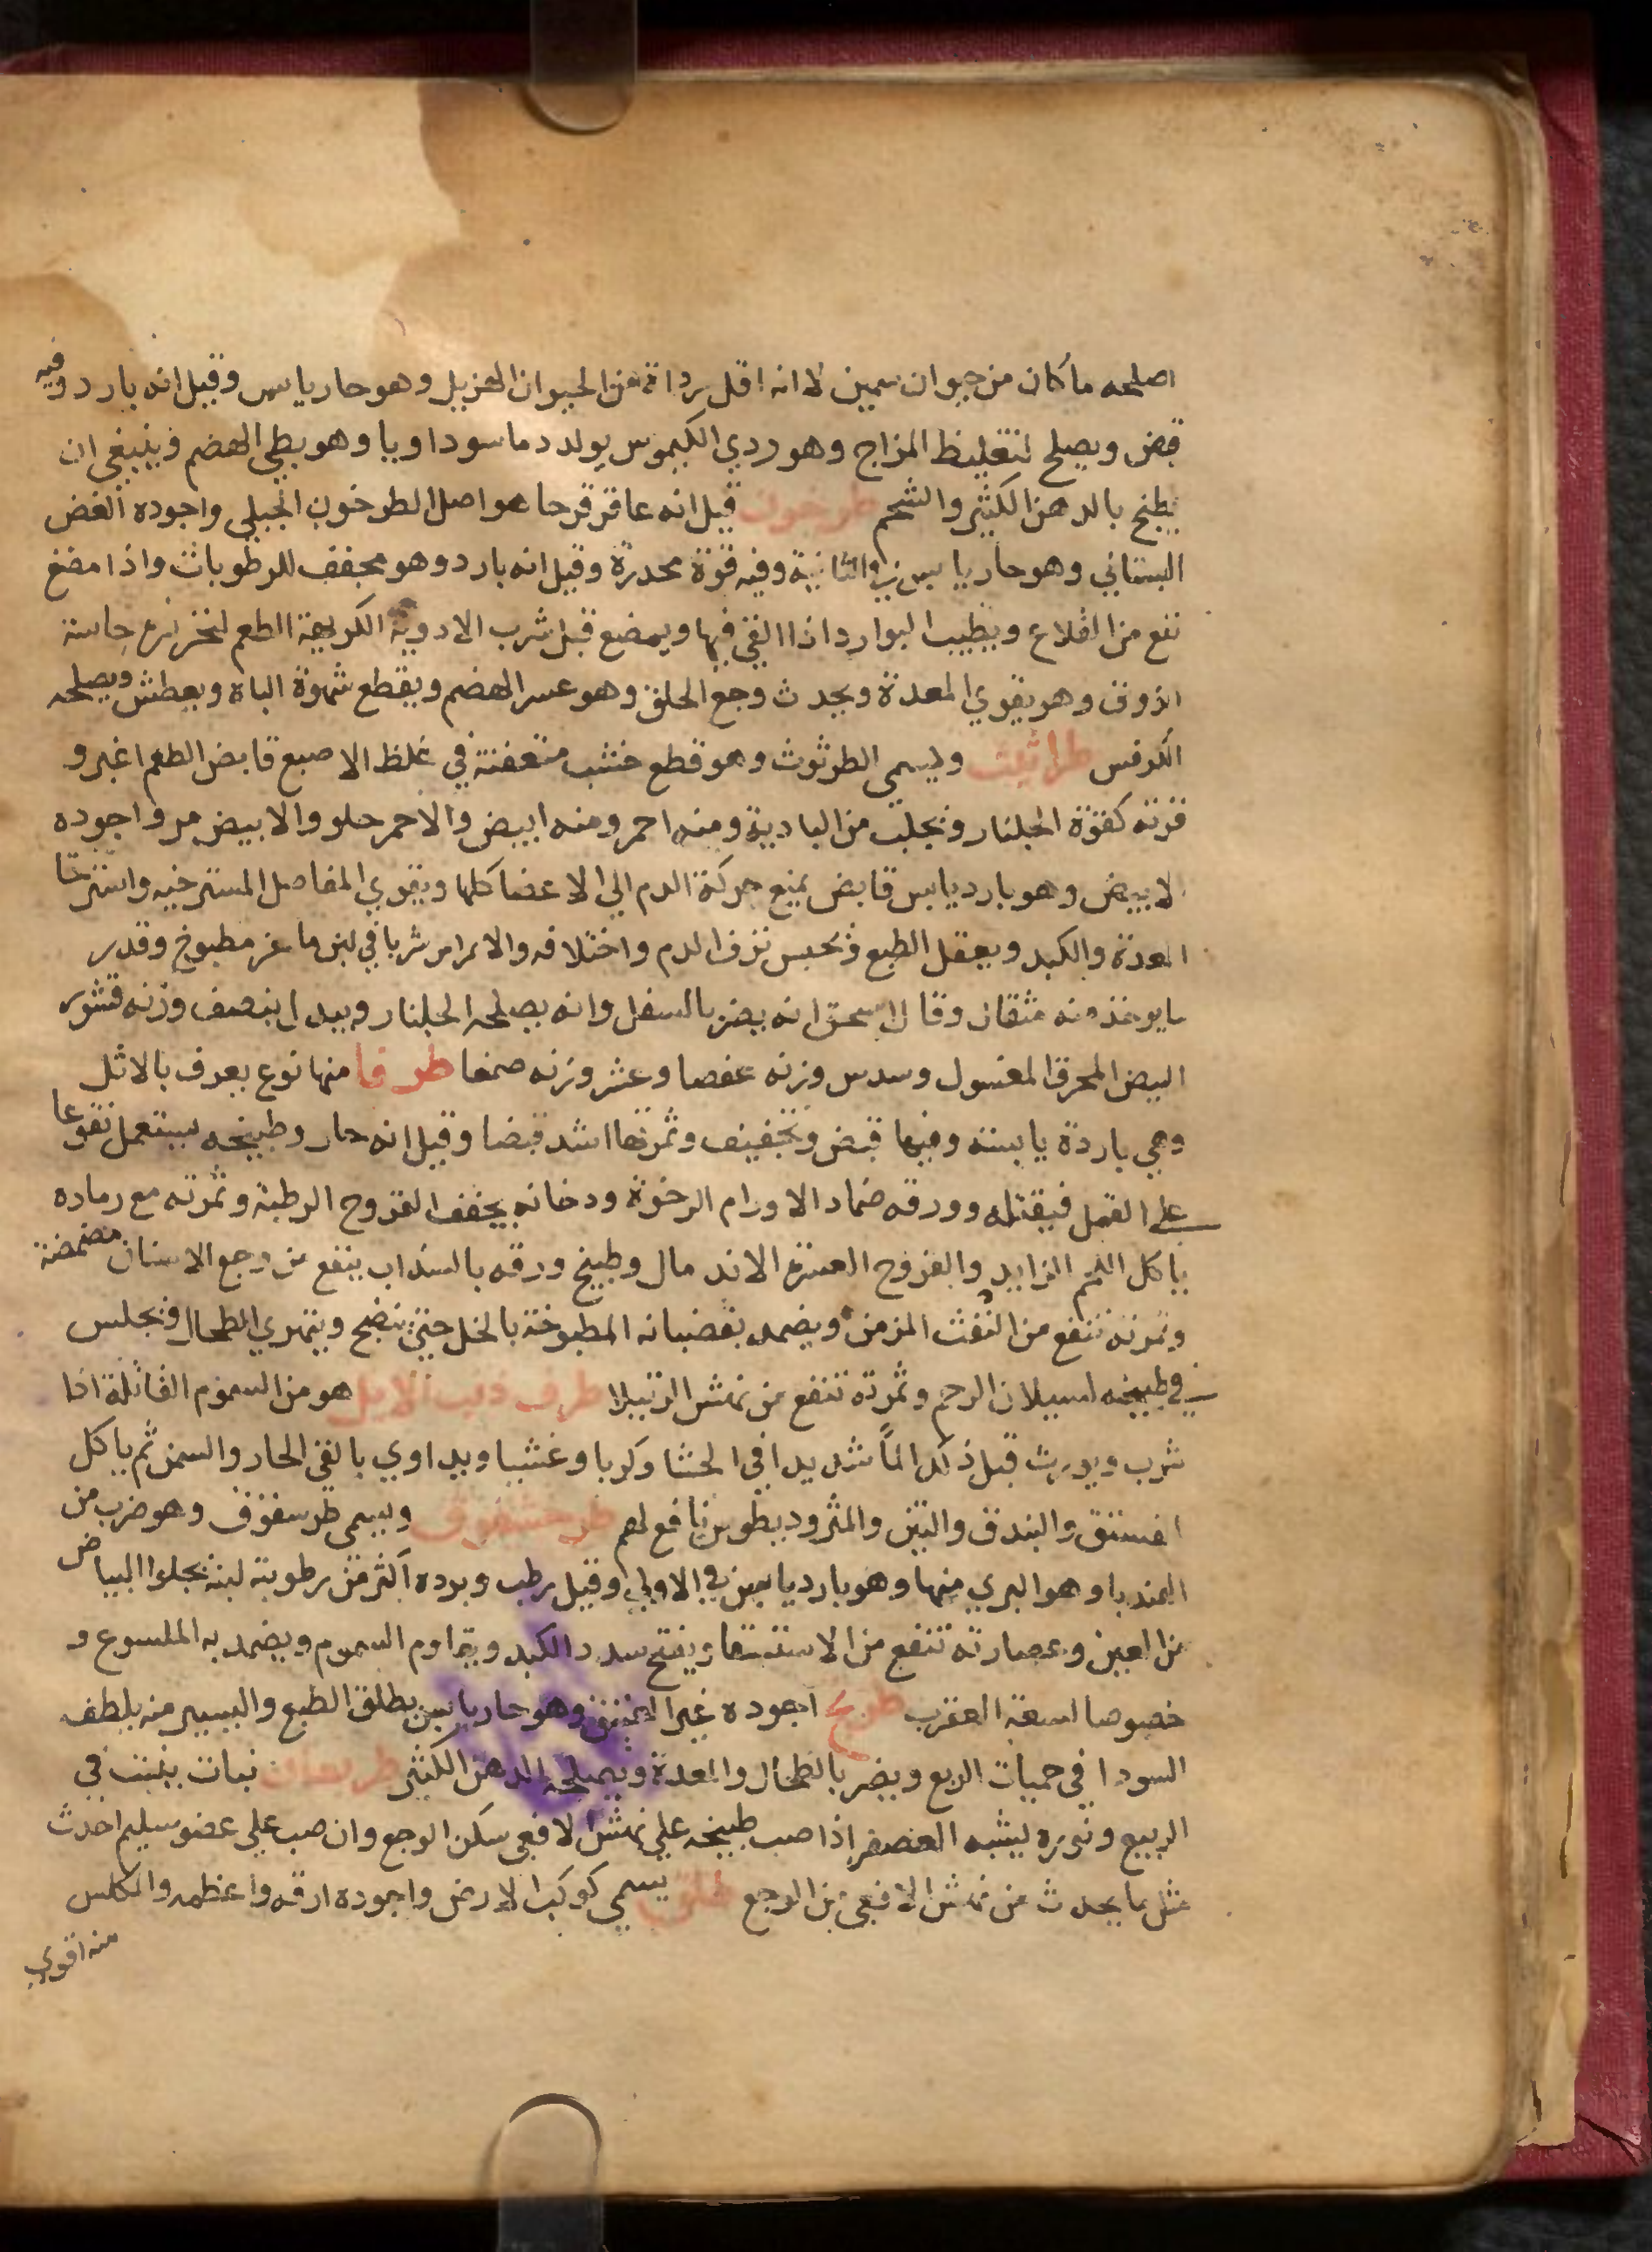 اصلحه ما كان من حيوان سمين لا انه اقل رداة من الحيوان الهزيل وهو حار يابس وقيل انه بارد وفيه
قبض ويصلح لتغليظ المزاج وهو ردي الكيموس يولد دما سوداويا وهو بطي الهضم وينبغي ان
يطبخ بالدهن الكثير والشحم طرخون قيل انه عاقرقرحا هو اصل الطرخون الجبلي واجوده الغض
البستاني وهو حار يابس في الثانية وفيه قوة مخدرة وقيل انه بارد وهو مجفف للرطوبات واذا مضغ
نفع من القلاع ويطيب البوارد اذا القي فيها ويمضع قبل شرب الادوية الكريهة الطعم لتخذر حاسة
الذوق وهو يقوي المعدة ويحدث وجع الحلق وهو عسر الهضم ويقطع شهوة الباه ويعطش ويصلحه
الكرفس طراثيث وليسمى الطرثوث وهو قطع خشب متعفنة في غلظ الاصبع قابض الطعم اغبر و
قوته كقوة الجلنار وتجلب من البادية ومنه احمر ومنه ابيض والاحمر حلو والابيض مر واجوده
لابيض وهو بارد يابس قابض يمنع حركة الدم الي الاعضا كلها ويقوي المفاصل المسترخيه واسترخا
المعدة والكبد ويعقل الطبع وتحبس نزف الدم واختلافه والامراس شربا في لبن ماعز مطبوخ وقدر
مايوخذ منه مثقال وقال اسحق انه يضر بالسفل وانه يصلحه الجلنار وبيدل ابنصف وزنه قشور
البيض المحرق المغسول وسدس وزنه عفصا وعشر وزنه صمغا طرفا منها نوع يعرف بالاثل
وهي باردة يابسة وفيها قبض وتجفيف وثمرتها اشد قبضا وقيل انه حار وطبيخه يستعمل نقوعا
علي القمل فيقتله وورقه ضماد الاورام الرخوة ودخانه يجفف القروح الرطبة وثمرته مع رماده
ياكل اللحم الزايد والقروح العسرة الاندمال وطبيخ ورقه بالشداب ينفع من وجع الاسنان مضمضة
وثمرته تنفع من النفث المزمن ويضمد بقضبانه المطبوخة بالخل حتي ينضج ويتهري الطحال وتجلس
في طبيخه لسيلان الرحم وثمرته تنفع من نهش الرتيلا طرف ذنب الايل هو من السموم القاتلة اذا
شرب ويورث قبل ذلك الماً شديدا في الحشا وكربا وغشيا ويداوي بالقي الحار والسمن ثم ياكل
الفستق والبندق والتين والمثروديطوس نافع لهم طرحشقوق ويسمى طرسقوق وهو ضرب من
الهندبا وهو البري منها وهو بارد يابس في الاولي وقيل رطب وبرده اكثر من رطوبته لبنه يجلوا البياض
من العين وعصارته تنفع من الاستسقا ويفتح سدد الكبد ويقاوم السموم ويضمد به الملسوع و
خصوصا لسعة العقرب اجوده غير وهو حار يابس يطلق الطبع واليسير منه يلطف
السودا في حميات الربع ويضر بالطحال والمعدة ويصلحه الدهن الكثير نبات ينبت في
الربيع ونوره ليشبه العصفر اذا صب طبيخه علي نهش الافعي سكن الوجع وان صب علي عضو سليم احدث
مثل ما يحدث من نهش الافعي من الوجع طلق يسمى كوكب الارض واجوده ارقه واعظمه والمكلس
منه اقوي